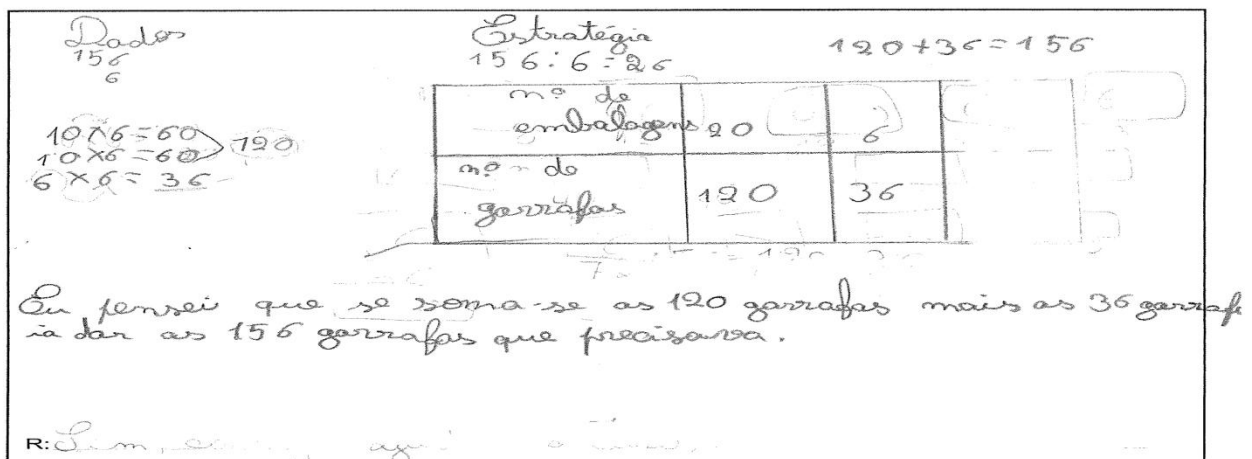 Dados
156
6
10×6=60
10×6=60 120
6×6=36
Estratégia
156:6=26
120+36=156
nº de embalagens 20 6
nº de garrafas 120 36
Eu pensei que se soma-se as 120 garrafas mais as 36 garraf
ia dar as 156 garrafas que precisava.
R: Sim,